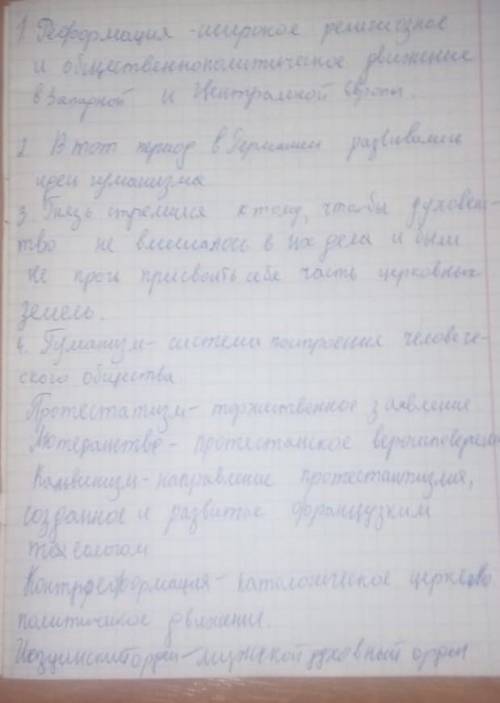 1 Реформация - широкое религиозное
и общественнополитическое движение
в Западной и Центральной Европы.
2. В тот период в Германии развивались
идеи гуманизма
3. Князь стремился к тому, чтобы духовен-
тво не вмешалось в их дела и были
не проч присвоить себе часть церковных
земель.
4. Гуманизм - система построения человече-
ского общества
Протестатизм - торжественное заявление
Лютеранство - протестанское
Кальвинизм - направление протестантизма,
созданное и развитое французким
теологом
Контрреформация - катологическое церковно
политическое движение.
духовный орден